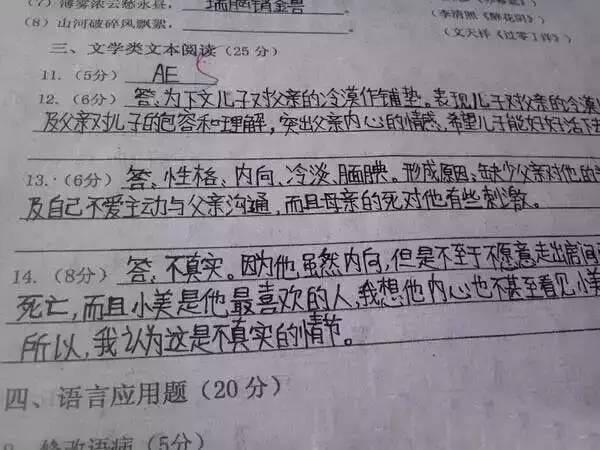 (7) 薄雾浓云愁永昼，瑞脑销金兽
(李清照《醉花阴》)
(8) 山河破碎风飘絮，
(文天祥《过零丁洋》)
三、文学类文本阅读(25分)
11. (5分) AE
12. (6分) 答：为下文儿子对父亲的冷漠作铺垫。表现儿子对父亲的冷漠
及父亲对儿子的包容和理解，突出父亲内心的情感，希望儿子能好好活下去
13. (6分) 答：性格：内向、冷淡、腼腆。形成原因：缺少父亲对他的
及自己不爱主动与父亲沟通，而且母亲的死对他有些刺激。
14. (8分) 答：不真实。因为他虽然内向，但是不至于不愿意走出房间
死亡，而且小美是他最喜欢的人，我想他内心也不甚至看见小美
所以，我认为这是不真实的情节。
四、语言应用题(20分)
修改语病(5分)